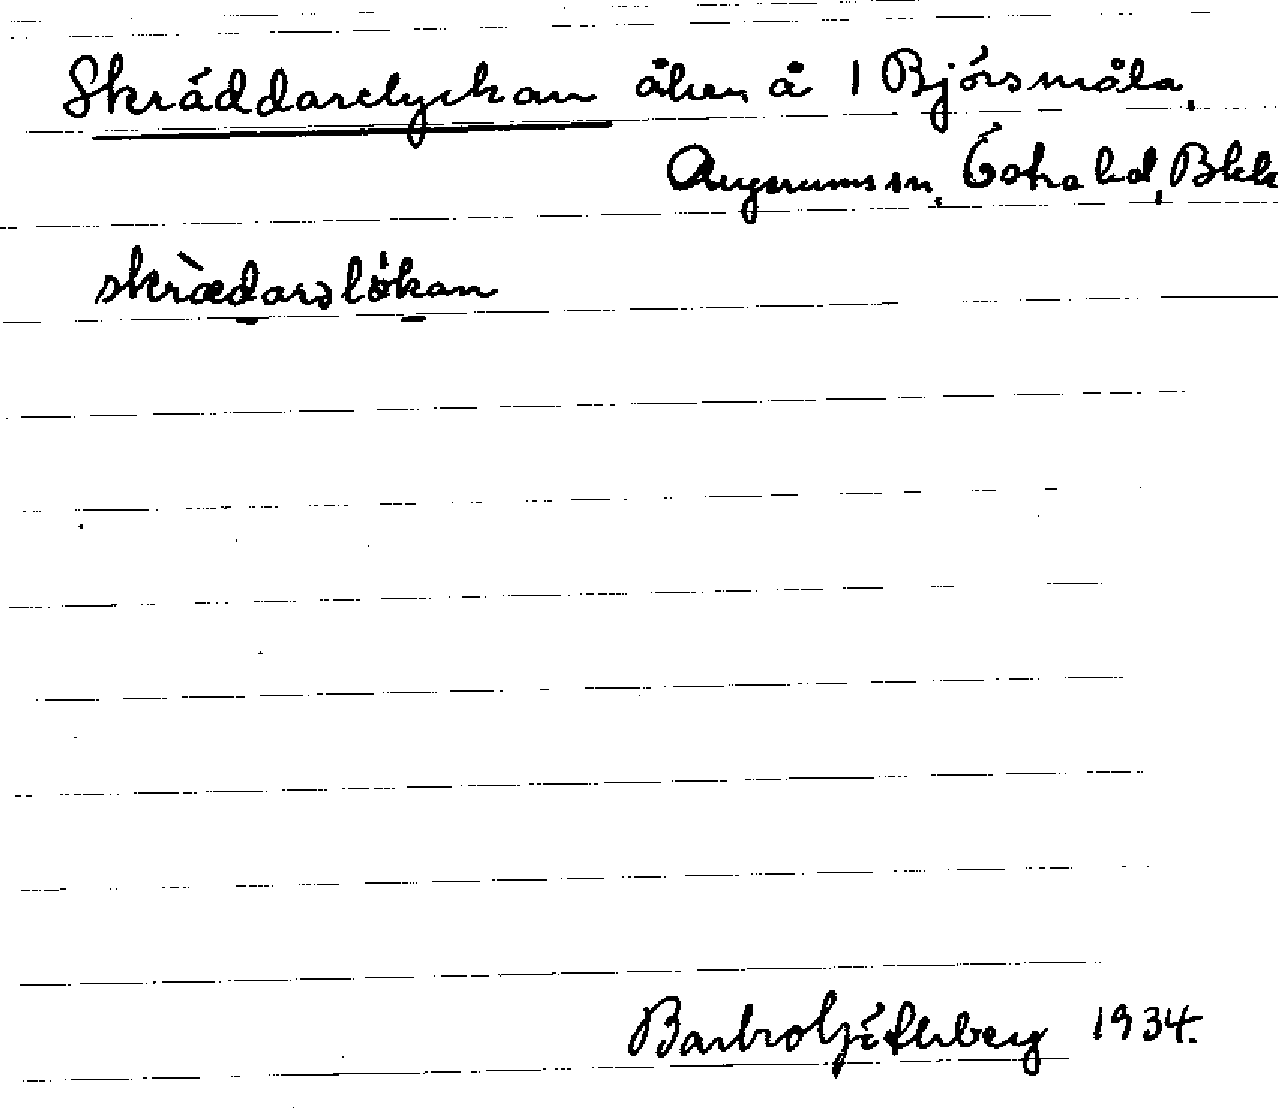 Skräddarelyckan åker å 1 Björsmåla,
Augerums sn, Östra hd, Blek
skrædarəlökan
Barbro Götherberg 1934.